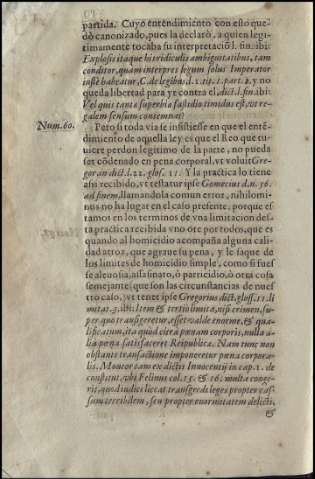 partida. Cuyo entendimiento con esto que-
dò canonizado, pues la declarò, a quien legi-
timamente tocaba su interpretaciõ l. fin. ibi:
Explosis itaque his ridiculis ambiguitatibus, tam
conditor, quam interpres legum solus Imperator
iustè habeatur, C. de legibus, d. l. 14. t. 1. part. 1. y no
queda libertad para yr contra el dict. l. fin. ibi:
Vel quis tantæ superbiæ fastidio timidus est, vt re-
galem sensum contemnat?
Num. 60. Pero si toda via se insistiesse en que el enté-
dimiento de aquella ley es que el Reo que tu-
uiere perdon legitimo de la parte, no pueda
ser cõdenado en pena corporal, vt voluit Gre-
gor. in dict. l. 22. glos. 11. Y la practica lo tiene
assi recibido, vt testatur ipse Gomecius d. n. 56.
ad finem, llamandola comun error, nihilomi-
nus no ha lugar en el caso presente, porque es
tamos en los terminos de vna limitacion des-
ta practica recibida vno ore por todos, que es
quando al homicidio acompaña alguna cali-
dad atroz, que agraue su pena, y le saque de
los limites de homicidio simple, como si fues
se aleuosia, assasinato, ò parricidio, ò otra cosa
semejante, que son las circunstancias de nues
tro caso, vt tenet ipse Gregorius dict. gloss. 11. li
mitat. 3. ibi: Item & tertiò limita, nisi crimen, su-
per quo transigeretur, esset valde enorme, & qua-
lificatum, ita quòd citra pœnam corporis, nulla a-
lia pœna satisfaceret Reipublicæ. Nam tunc non
obstante transactione imponeretur pœna corpora-
lis. Moueor eam ex dictis Innocentij in cap. 1. de
constitut. vbi Felinus col. 15. & 16. multa conge-
rit, quòd iudici liceat transgredi leges propter cau-
sam terribilem, seu propter enormitatem delicti,
&